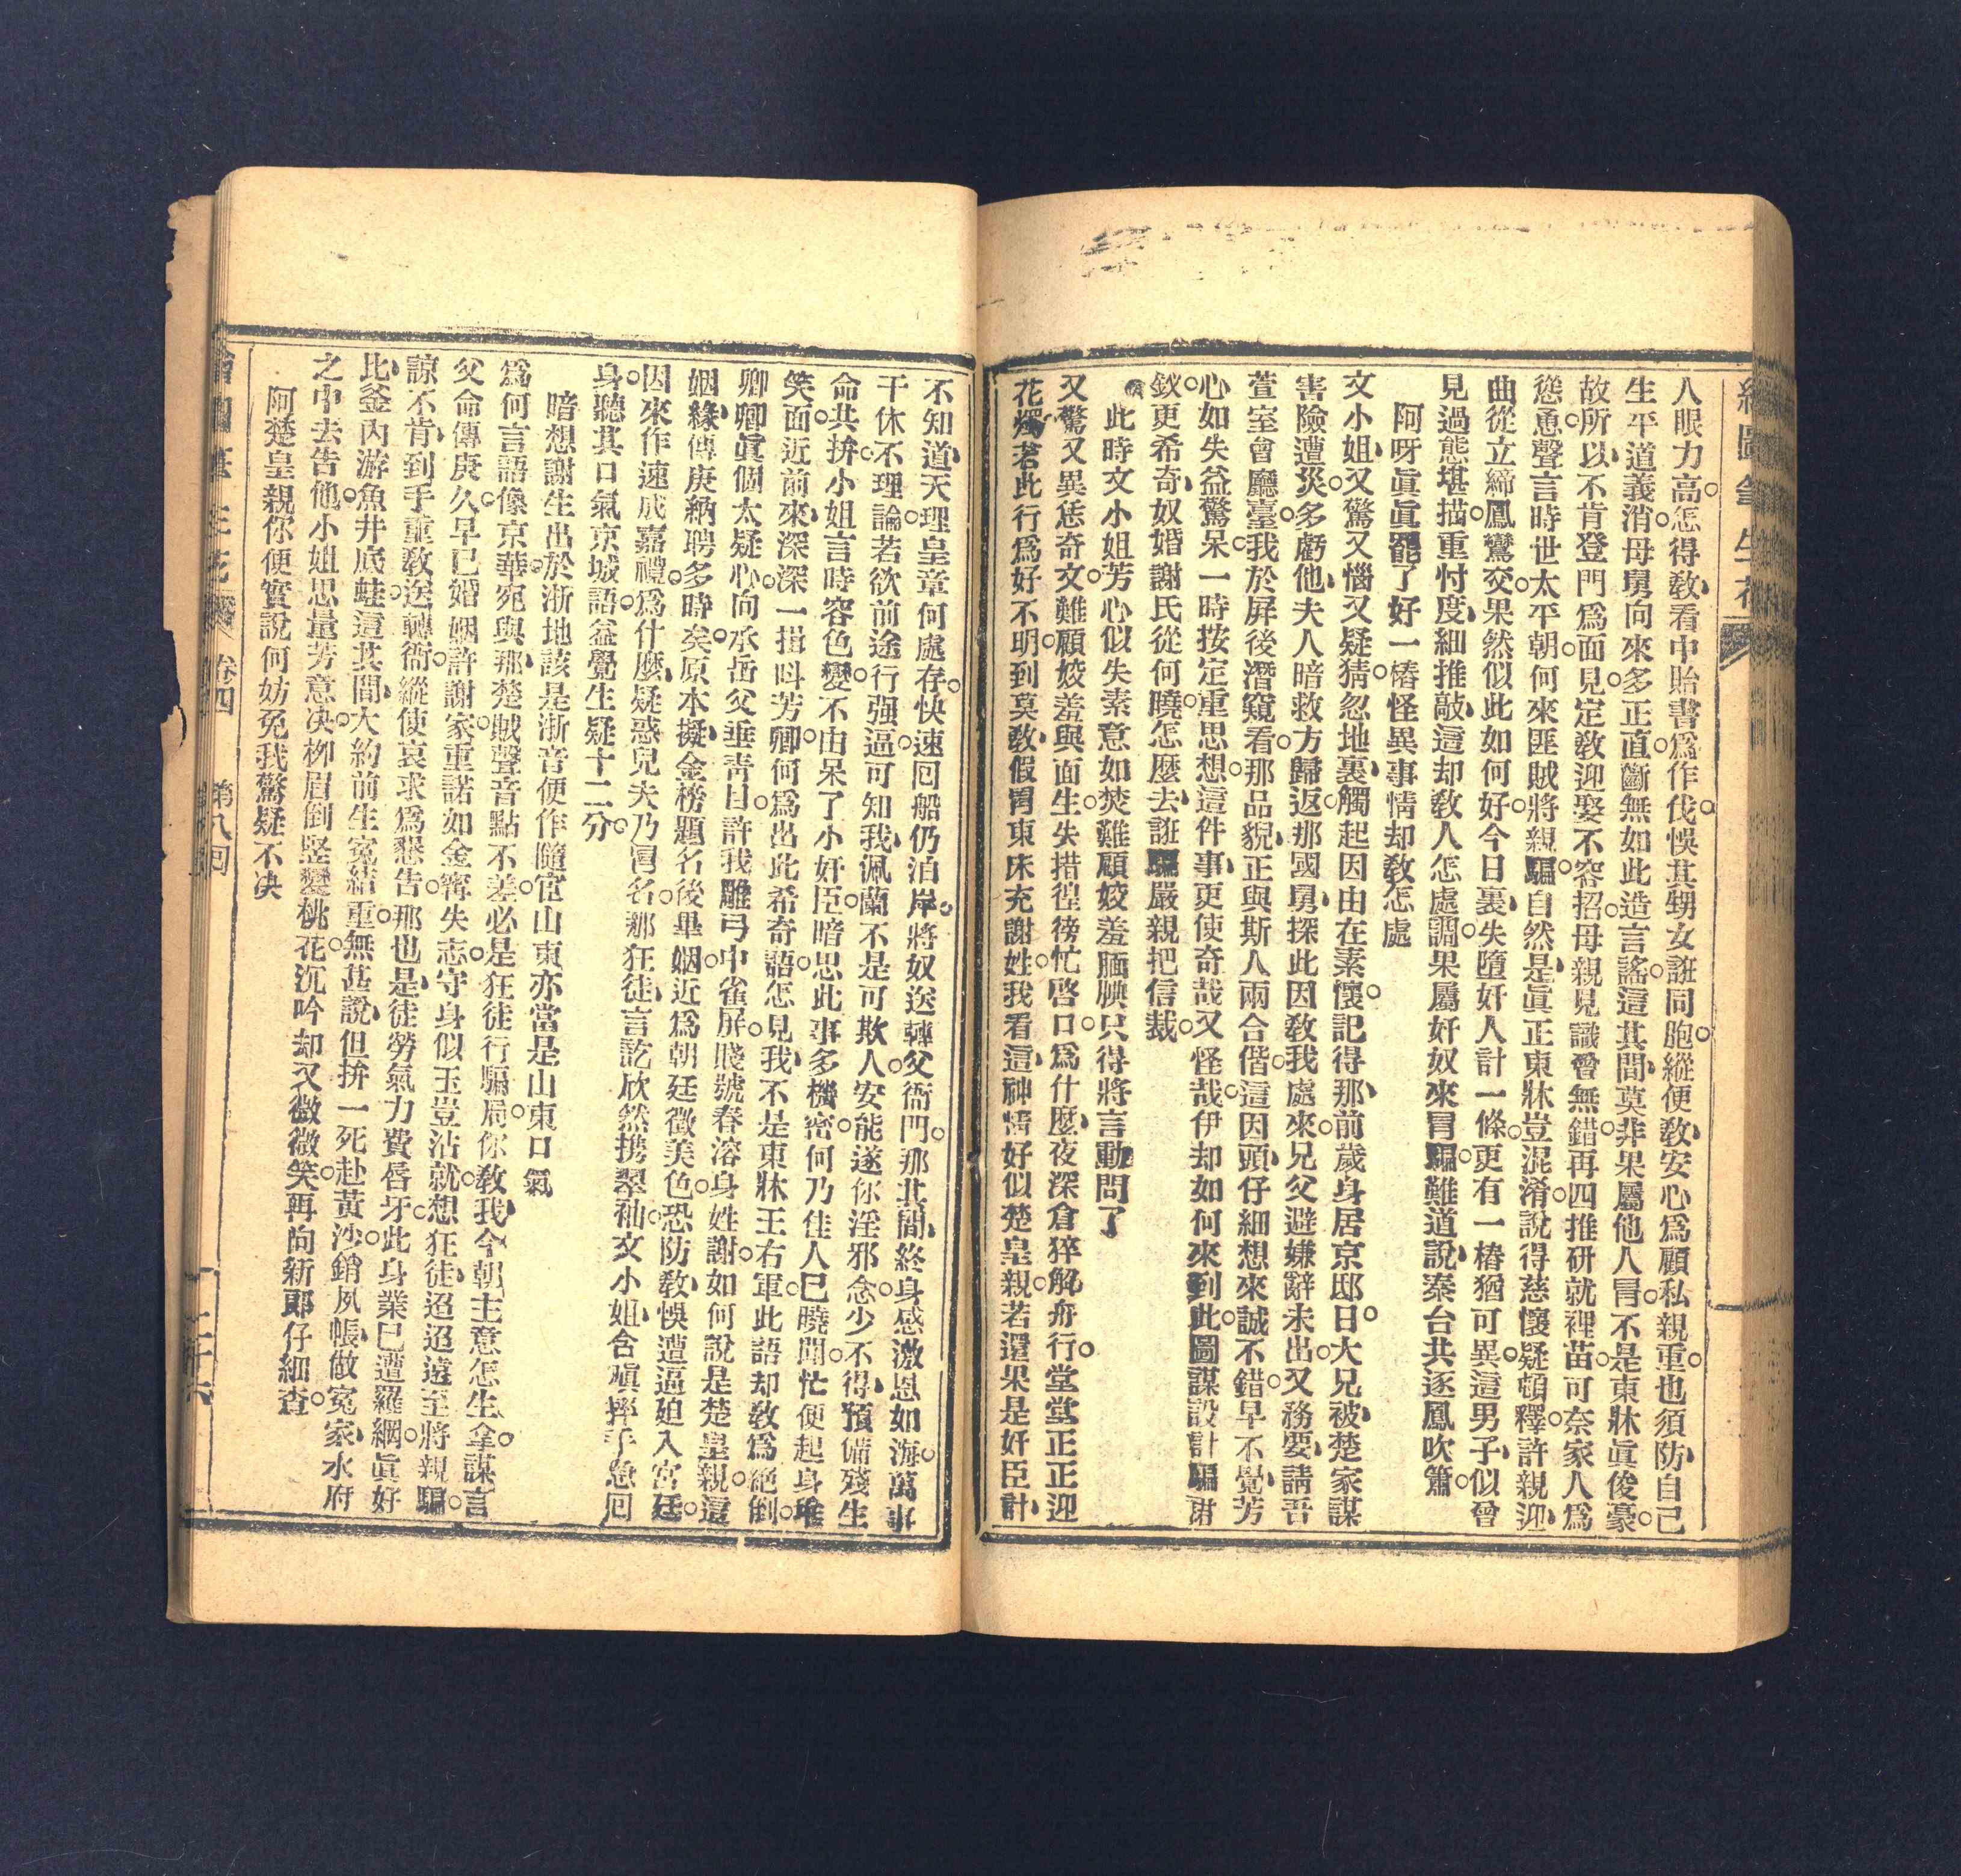 繪圖筆生花
人眼力高怎得敎看中貽書爲作伐悞其甥女誑同胞縱便敎安心爲顧私親重也須防自己
生平道義消母舅向來多正直斷無如此造言謠這其間莫非果屬他人冐不是東牀眞俊豪
故所以不肯登門爲面見定敎迎娶不容招母親見識曾無錯再四推研就裡苗可奈家人爲
慫恿聲言時世太平朝何來匪賊將親騙自然是眞正東牀豈混淆說得慈懷疑頓釋許親迎
曲從立締鳳鸞交果然似此如何好今日裏失墮奸人計一條更有一樁猶可異這男子似曾
見過態堪描重忖度細推敲這却敎人怎處調果屬奸奴來冐騙難道說秦台共逐鳳吹簫
阿呀眞眞罷了好一樁怪異事情却敎怎處
文小姐又驚又惱又疑猜忽地裏觸起因由在素懷記得那前歲身居京邸日大兄被楚家謀
害險遭災多虧他夫人暗救方歸返那國舅探此因敎我處來兄父避嫌辭未出又務要請吾
萱室會廳臺我於屏後潛窺看那品貌正與斯人兩合偕這因頭仔細想來誠不錯早不覺芳
心如失益驚呆一時按定重思想這件事更使奇哉又怪哉伊却如何來到此圖謀設計騙謝
釵更希奇奴婚謝氏從何曉怎麼去誑騙嚴親把信裁
此時文小姐芳心似失素意如焚難顧姣羞腼腆只得將言動問了
又驚又異恁奇文難顧姣羞與面生失措徨徬忙啓口爲什麼夜深倉猝解舟行堂堂正正迎
花燭若此行爲好不明到莫敎假冐東床充謝姓我看這神情好似楚皇親若還果是奸臣計
不知道天理皇章何處存快速回船仍泊岸將奴送轉父衙門那其間終身感激恩如海萬事
干休不理論若欲前途行强逼可知我佩蘭不是可欺人安能遂你淫邪念少不得預備殘生
命共拚小姐言時容色變不由呆了小奸臣暗思此事多機密何乃佳人已曉聞忙便起身堆
笑面近前來深深一揖呌芳卿何爲出此希奇語怎見我不是東牀王右軍此語却敎爲絕倒
卿卿眞個太疑心向承岳父垂靑目許我雕弓中雀屏賤號春溶身姓謝如何說是楚皇親這
姻緣傳庚納聘多時矣原本擬金榜題名後畢姻近爲朝廷徵美色恐防敎悞遭逼廹入宮廷
因來作速成嘉禮爲什麼疑惑兒夫乃冐名那狂徒言訖欣然携翠袖文小姐含嗔摔手急回
身聽其口氣京城語益覺生疑十二分
暗想謝生出於浙地該是浙音便作隨宦山東亦當是山東口氣
爲何言語像京華宛與那楚賊聲音點不差必是狂徒行騙局你敎我今朝主意怎生拿謀言
父命傳庚久早已婚姻許謝家重諾如金甯失志守身似玉豈沾就想狂徒迢迢遠至將親騙
諒不肯到手重敎送轉衙縱使哀求爲懇告那也是徒勞氣力費唇牙此身業已遭羅綱眞好
比釜內游魚井底蛙這其間大約前生寃結重無甚說但拚一死赴黃沙銷夙帳做寃家水府
之中去告他小姐思量芳意决柳眉倒竪變桃花沉吟却又微微笑再向新郎仔細查
阿楚皇親你便實說何妨免我驚疑不决
繪圖筆生花 卷四 第八回 二十六